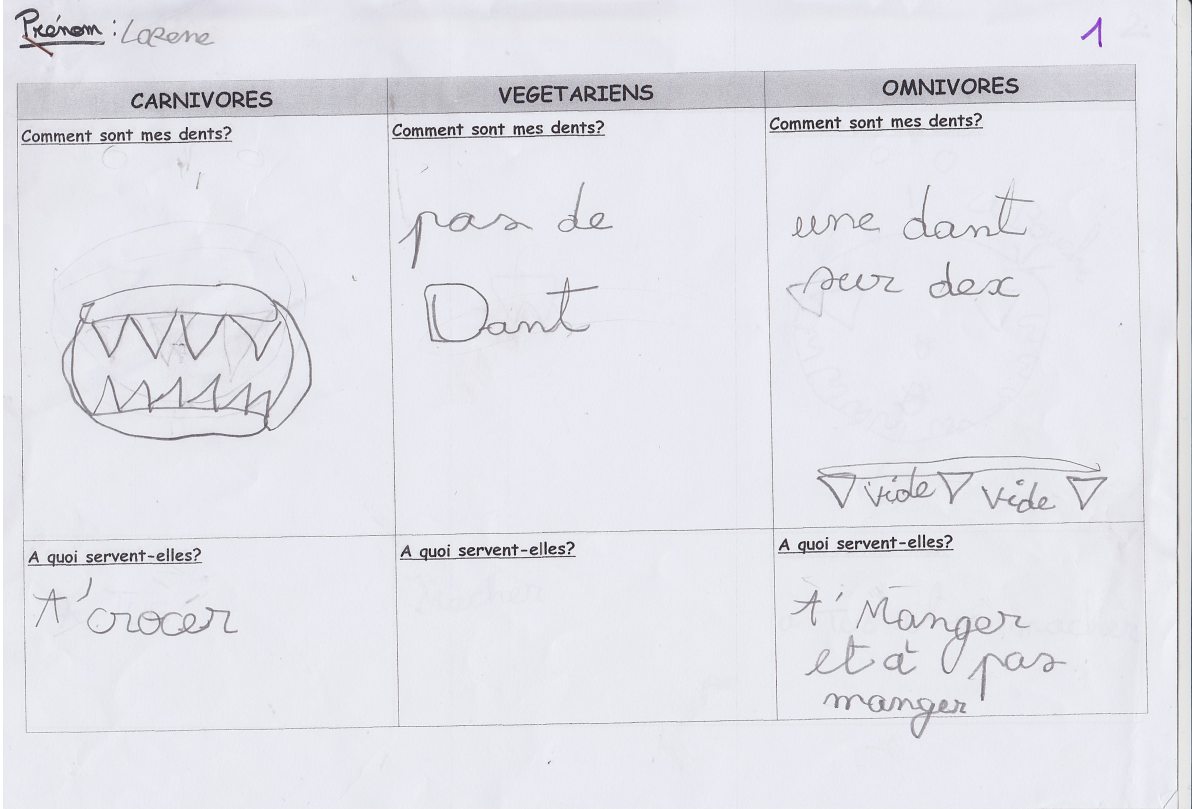 Prénom : Lorene
1
CARNIVORES
VEGETARIENS
OMNIVORES
Comment sont mes dents?
Comment sont mes dents?
pas de
Dant
Comment sont mes dents?
une dant
sur dex
vide vide
A quoi servent-elles?
A' crocér
A quoi servent-elles?
A quoi servent-elles?
A' Manger
et à pas
manger